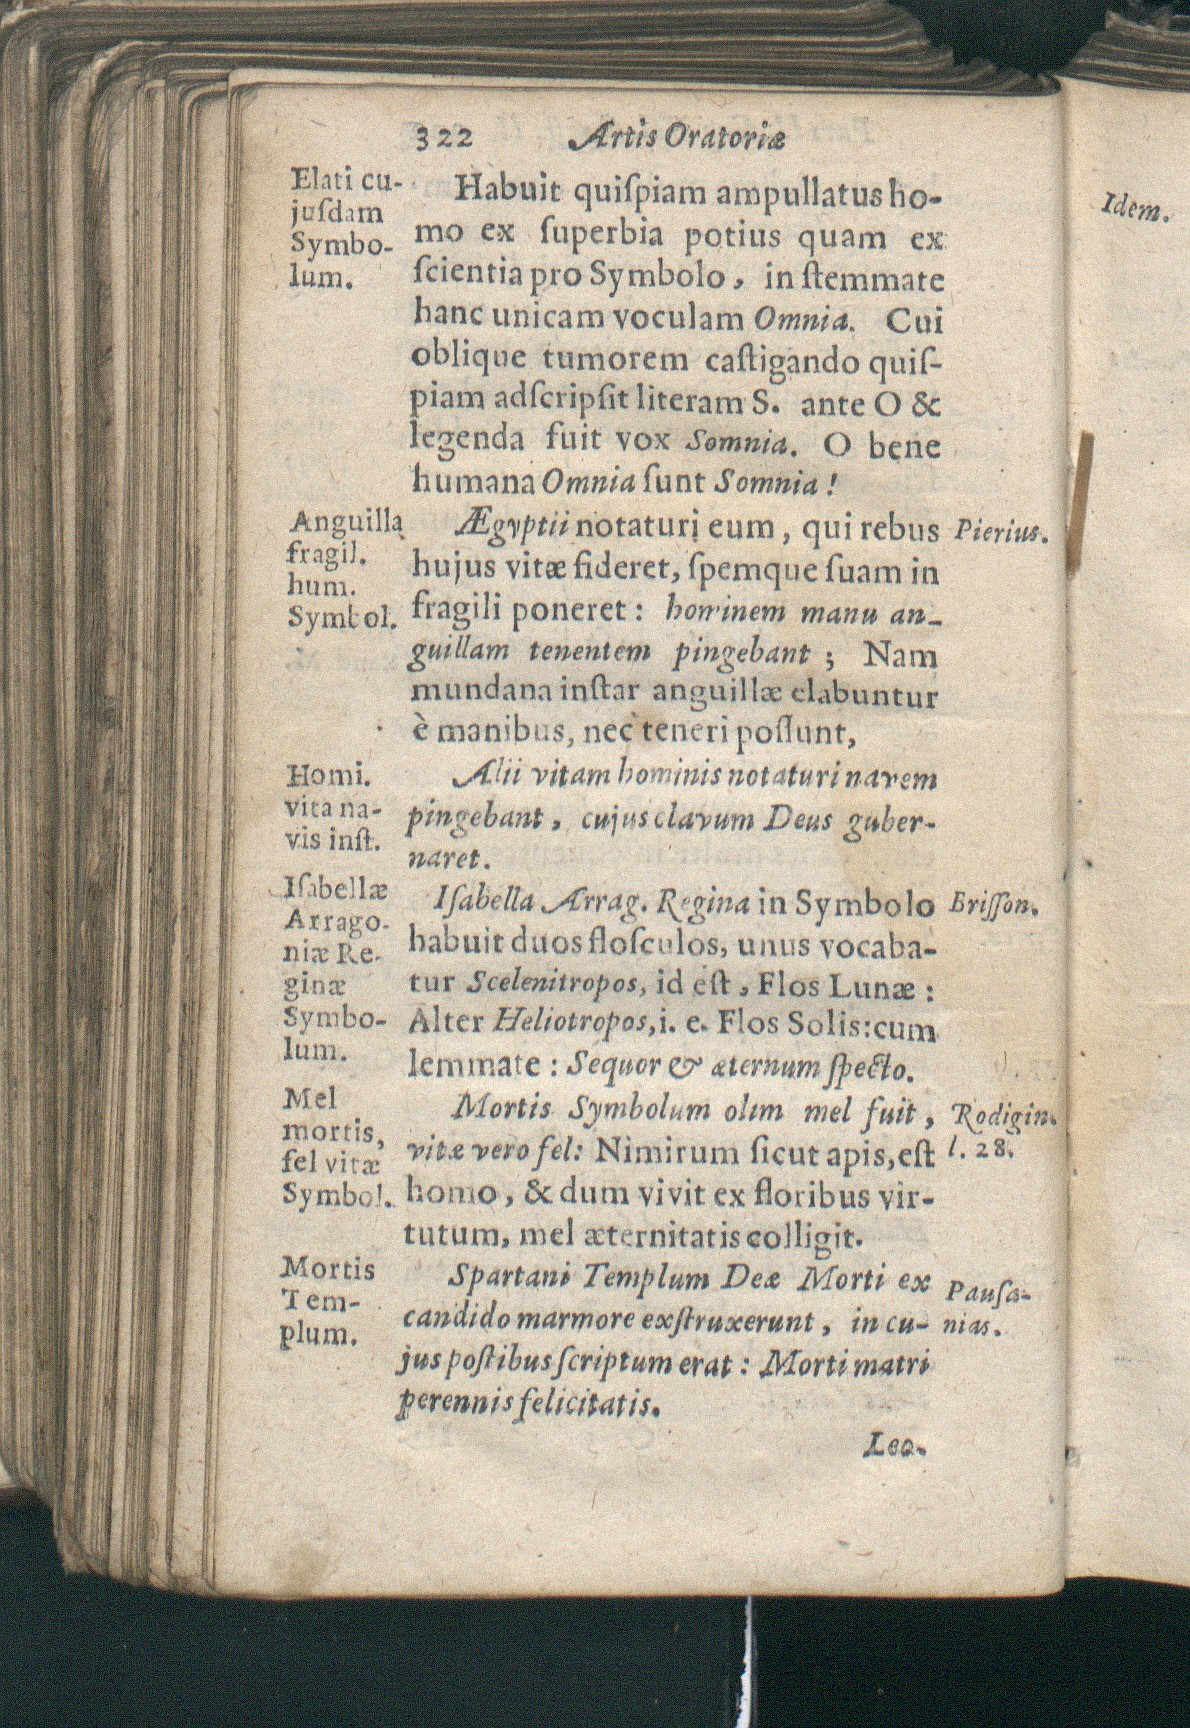 322 Artis Oratoriæ
Elati cu-
juſdam
Symbo-
lum.
Habuit quiſpiam ampullatus ho-
mo ex ſuperbia potius quam ex
ſcientia pro Symbolo, in ſtemmate
hanc unicam voculam Omnia. Cui
oblique tumorem caſtigando quiſ-
piam adſcripſit literam S. ante O &
legenda fuit vox Somnia. O bene
humana Omnia ſunt Somnia!
Anguilla
fragil.
hum.
Symbol.
Ægyptii notaturi eum, qui rebus
hujus vitæ fideret, ſpemque ſuam in
fragili poneret: hominem manu an-
guillam tenentem pingebant; Nam
mundana inſtar anguillæ elabuntur
è manibus, nec teneri poſſunt,
Pierius.
Homi.
vita na-
vis inſt.
Alii vitam hominis notaturi navem
pingebant, cujus clavum Deus guber-
naret.
Iſabellæ
Arrago-
niæ Re-
ginæ
Symbo-
lum.
Iſabella Arrag. Regina in Symbolo
habuit duos floſculos, unus vocaba-
tur Scelenitropos, id eſt, Flos Lunæ:
Alter Heliotropos, i. e. Flos Solis: cum
lemmate: Sequor & æternum ſpecto.
Briſſon.
Mel
mortis,
fel vitæ
Symbol.
Mortis Symbolum olim mel fuit,
vitæ vero fel: Nimirum ſicut apis, eſt
homo, & dum vivit ex floribus vir-
tutum, mel æternitatis colligit.
Rodigin.
l. 28.
Mortis
Tem-
plum.
Spartani Templum Deæ Morti ex
candido marmore exſtruxerunt, in cu-
jus poſtibus ſcriptum erat: Morti matri
perennis felicitatis.
Pauſa-
nias.
Leo.
Idem.